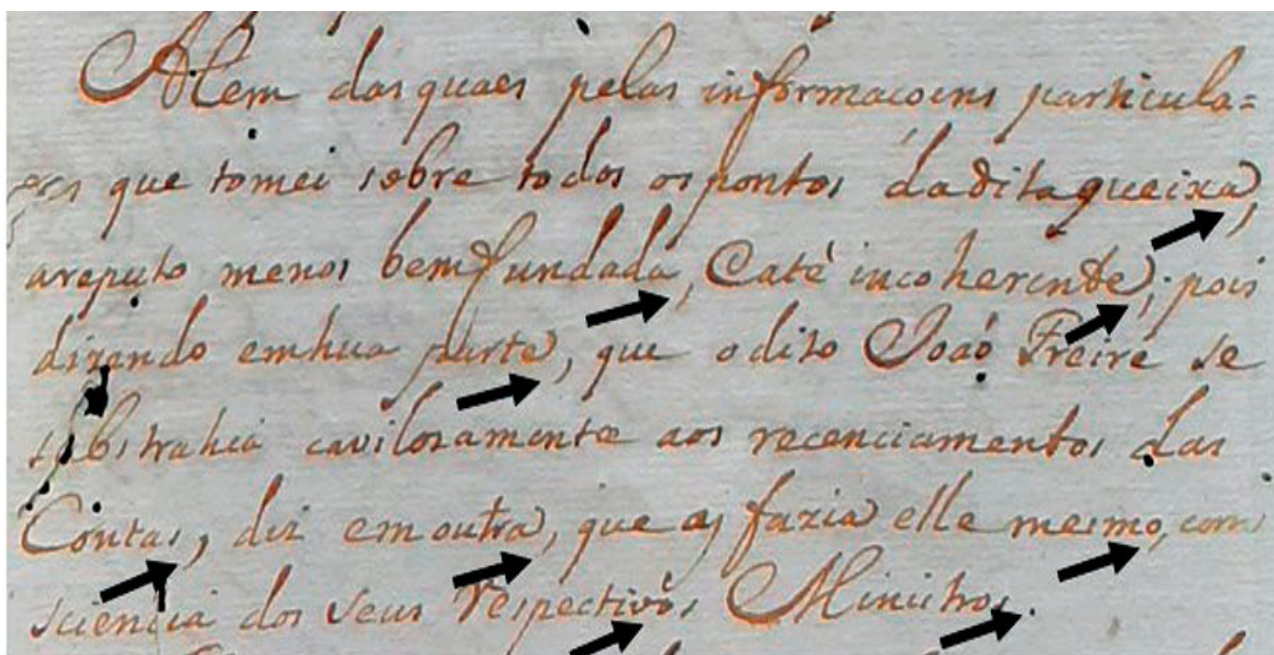 Alem dasquaes pelas informacoens particula=
res que tomei sobre todos ospontos daditaqueixa,
areputo menos bemfundada, Caté incoherente; pois
dizendo emhua parte, que odito Joaó Freire se
subtrahia cavilosamente aos recenciamentos das
Contas, diz emoutra, que as fazia elle mesmo, com
sciencia dos seus respectivos Ministros.